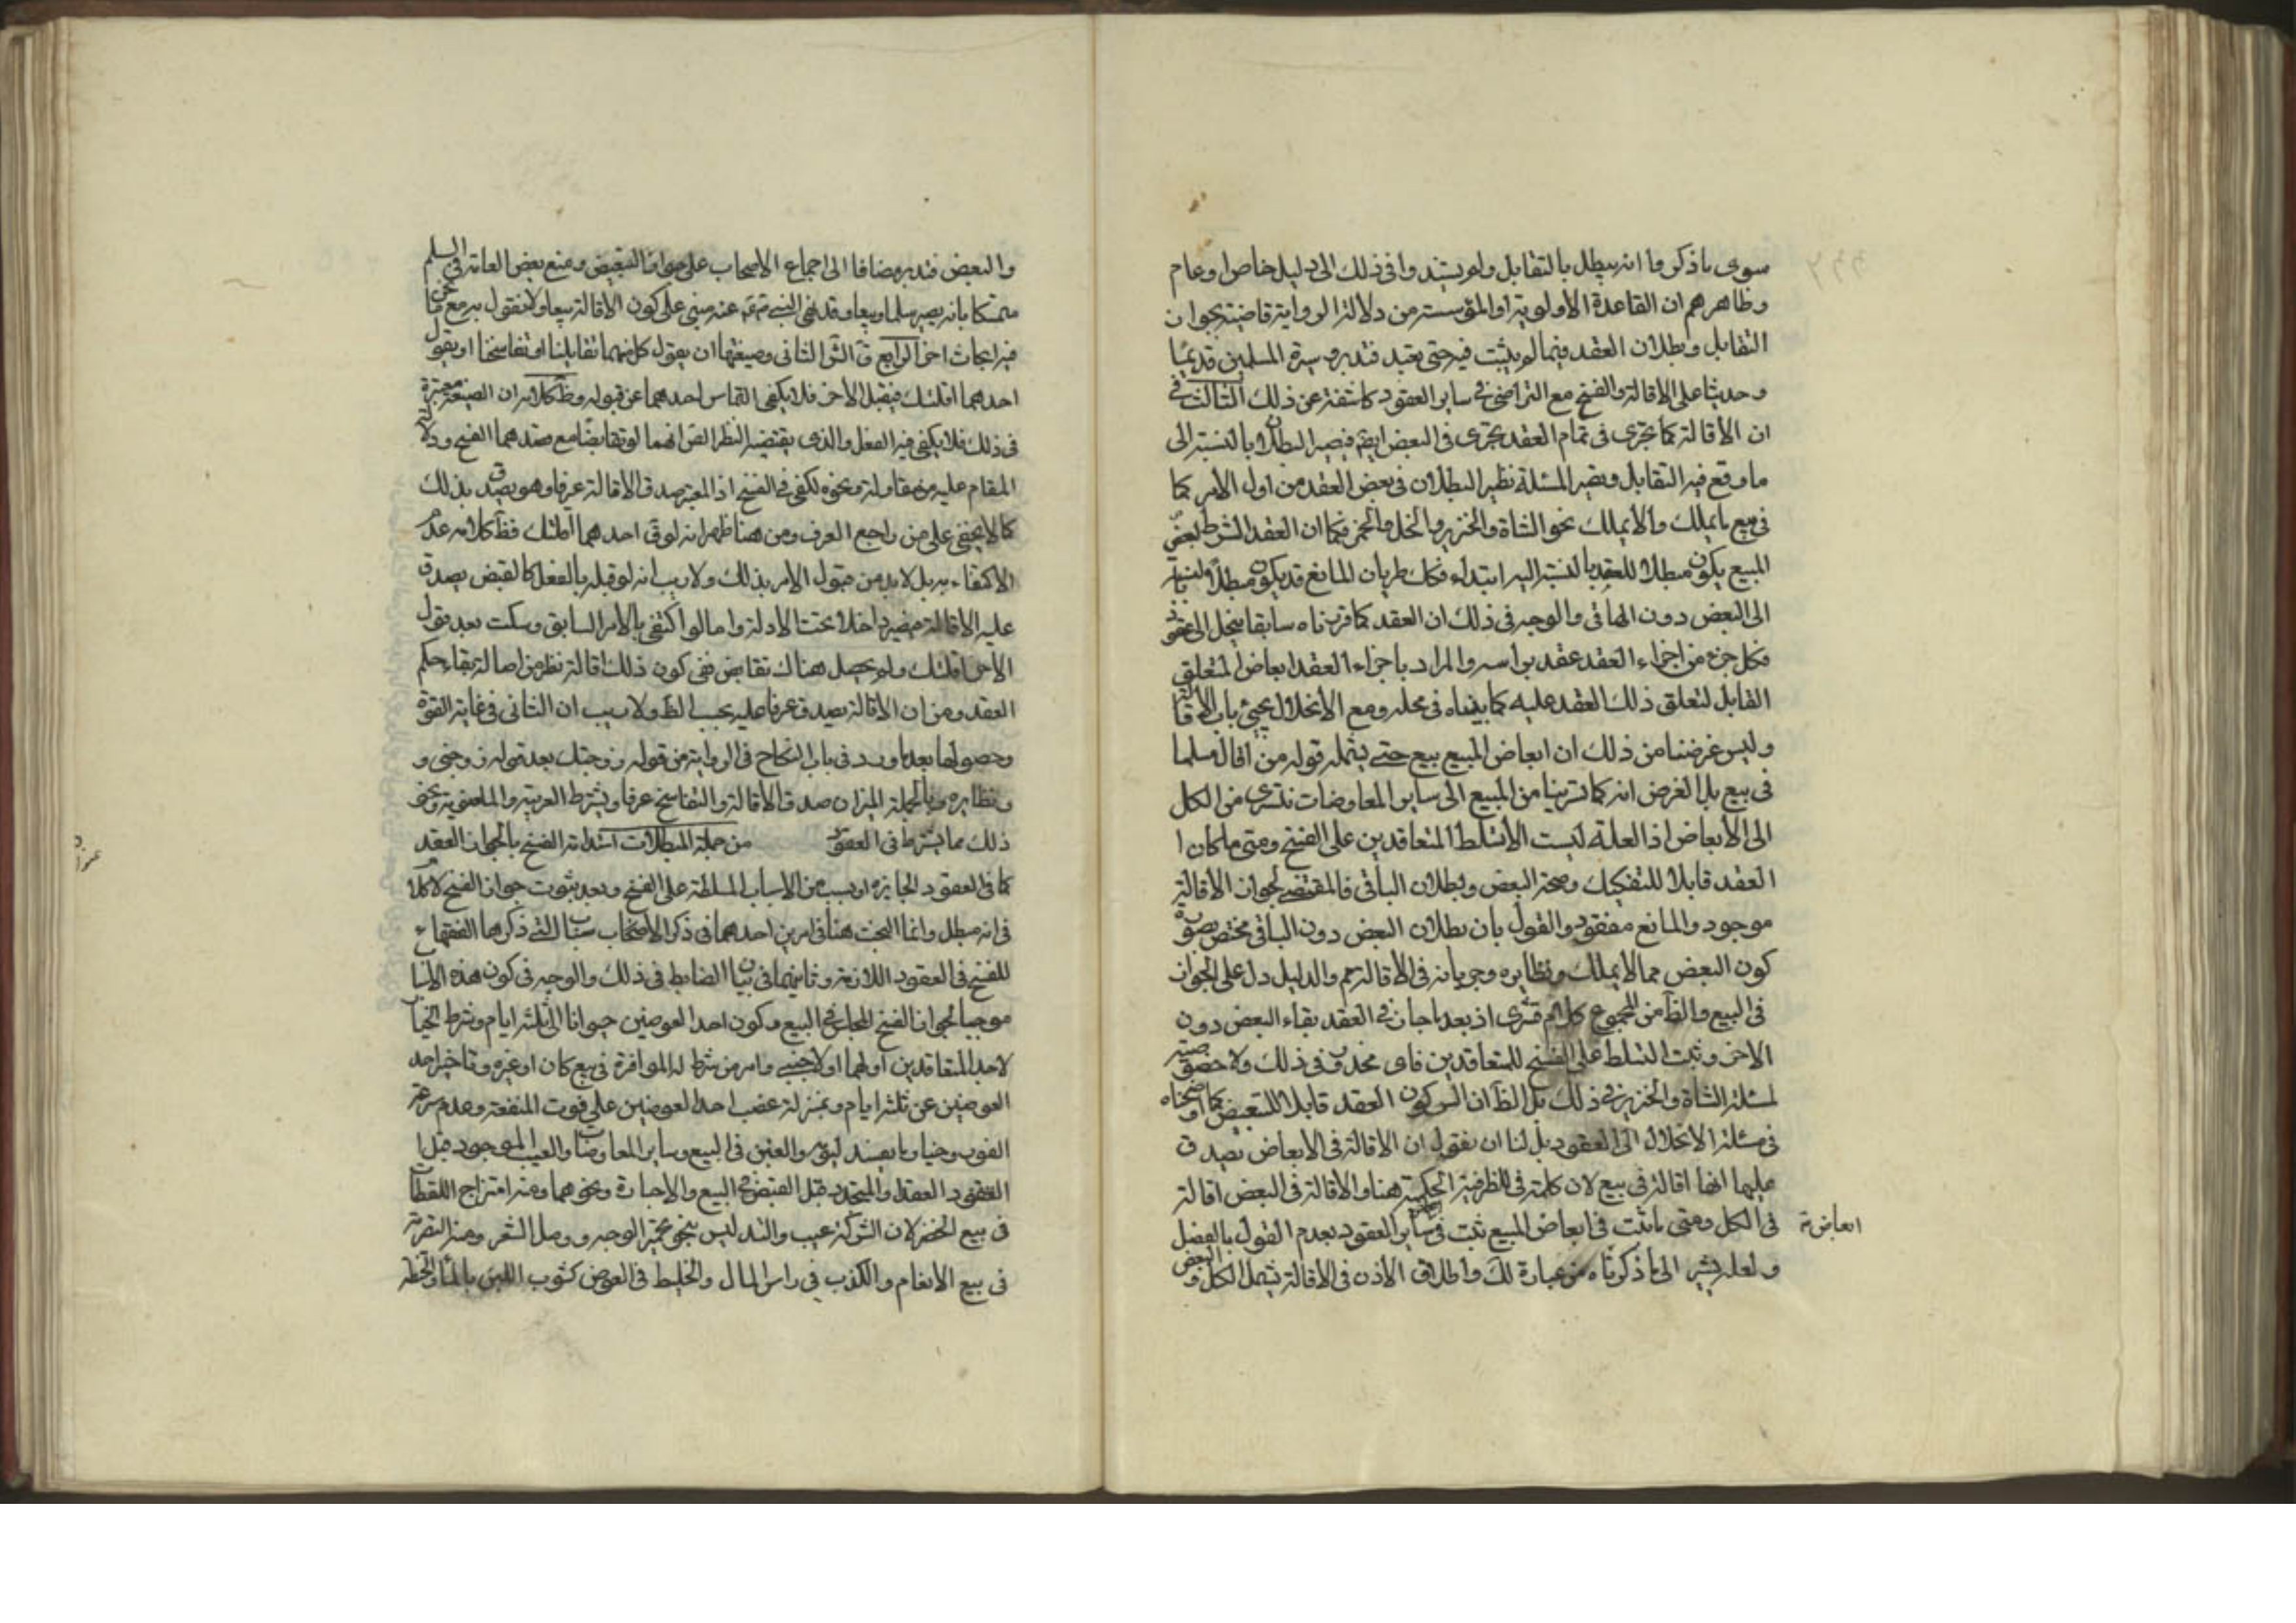 سوى ما ذكر وما انه يبطل بالتقايل ولم يستندوا فى ذلك الى دليل خاص او عام
وظاهرهم ان القاعدة الأولوية او المؤسسة من دلالة الرواية قاضية بجواز
التقايل وبطلان العقد فيما لم يثبت فيه حتى تعبد فتدبر وسيرة المسلمين قديمًا
وحديثا على الاقالة والفسخ مع التراضى فى ساير العقود كاشفة عن ذلك الثالث فى
ان الأقالة كما تجرى فى تمام العقد تجرى فى البعض ايضا فيصير البطلان بالنسبة الى
ما وقع فيه التقايل ويصير المسئلة نظير البطلان فى بعض العقد من اول الأمر كما
فى بيع ما يملك وما لا يملك نحو الشاة والخنزير والخل والخمر فكما ان العقد الشرط لبعض
المبيع يكون مبطلا للعقد بالنسبة اليه ابتداء فكك طريان المانع قد يكون مبطلا بالنسبة
الى البعض دون الباقى والوجه فى ذلك ان العقد كما قررناه سابقا ينحل الى عقود
فكل جزء من اجزاء العقد عقد براسه والمراد باجزاء العقد ابعاض المتعلق
القابل لتعلق ذلك العقد عليه كما بيناه فى محله ومع الأنحلال يجئ باب الاقالة
وليس غرضنا من ذلك ان ابعاض المبيع بيع حتى يشمله قوله من اقال مسلما
فى بيع بل الغرض انه كما تسرينا من المبيع الى ساير المعاوضات نتسرى من الكل
الى الأبعاض اذ العلة ليست الا تسلط المتعاقدين على الفسخ ومتى ما كان ا
العقد قابلا للتفكيك وصحة البعض وبطلان الباقى فالمقتضى لجواز الاقالة
موجود والمانع مفقود والقول بان بطلان البعض دون الباقى مختص بصورة
كون البعض مما لا يملك ونظايره وجريانه فى الاقالة والدليل دل على الجواز
فى البيع والظ من المجموع كلام قشرى اذ بعد ما جاز فى العقد بقاء البعض دون
الاخر وثبت التسلط على الفسخ للمتعاقدين فاى محذور فى ذلك ولا خصوصية
لمسئلة الشاة والخنزير فى ذلك بل الظ ان السر كون العقد قابلا للتبعيض كما اوضحناه
فى مسئلة الانحلال الى العقود بل لنا ان نقول ان الاقالة فى الابعاض يصدق
عليها انها اقالة فى بيع لان كلمة فى للظرفية الحكمية هنا والاقالة فى البعض اقالة
فى الكل ومتى ما ثبت فى ابعاض المبيع ثبت فى ساير العقود بعدم القول بالفصل
ابعاض
ولعله يشير الى ما ذكرناه من عبارة لك واطلاق الأذن فى الاقالة يشمل الكل والبعض
والبعض فتدبر مضافا الى اجماع الاصحاب على جواز التبعيض ومنع بعض العامة فى السلم
متمسكا بانه يصير سلما وبيعا وقد نهى النبى عنه مبنى على كون الاقالة بيعا ولا نقول به مع
فيه ابحاث اخر الرابع ق الثانى وصيغتها ان يقول كل منهما تقايلنا او تفاسخنا او يقول
احدهما اقلتك فيقبل الأخر فلا يكفى التماس احدهما عن قبوله وظ كلامه ان الصيغة معتبرة
فى ذلك فلا يكفى فيه الفعل والذى يقتضيه النظر انهما لو تقابضا مع قصدهما الفسخ ودلالة
المقام عليه من مقاولة ونحوه لكفى فى الفسخ اذ المعتبر صدق الاقالة عرفا وهو يصدق بذلك
كما لا يخفى على من راجع العرف ومن هنا ظهر انه لو ق احدهما اقلنى فظ كلامه عدم
الاكتفاء به بل لابد من قبول الأمر بذلك ولا ريب انه لو قبله بالفعل كالقبض يصدق
عليه الاقالة فيصير داخلا تحت الادلة واما لو اكتفى بالأمر السابق وسكت بعد قول
الأخر اقلتك ولم يحصل هناك تقابض ففى كون ذلك اقالة نظر من اصالة بقاء حكم
العقد ومن ان الاقالة يصدق عرفا عليه بحسب الظ ولا ريب ان الثانى فى غاية القوة
وحصولها بعد ما ورد فى باب النكاح فى الرواية من قوله زوجتك بعد قوله زوجنى و
ونظايره وبالجملة الميزان صدق الأقالة والتفاسخ عرفا ويشترط العربية والماضوية ونحو
ذلك مما يشترط فى العقود من جملة المبطلات استدامة الفسخ بالجواز العقد
كما فى العقود الجايزة او بسبب من الاسباب المسلطة على الفسخ وبعد ثبوت جواز الفسخ لا كلام
فى انه مبطل وانما البحث هنا فى امرين احدهما فى ذكر الاسباب التى ذكرها الفقهاء
للفسخ فى العقود اللازمة وثانيهما فى بيان الضابط فى ذلك والوجه فى كون هذه الاسباب
موجبا لجواز الفسخ المجلس فى البيع وكون احد العوضين حيوانا الى ثلثة ايام وشرط الخيار
لاحد المتعاقدين او لهما او لاجنبى وامر من شرط له المؤامرة فى بيع كان او غيره وتاخير احد
العوضين عن ثلثة ايام وبمنزلة غصب احد العوضين على فوت المنفعة وعدم سرعة
الفور وخيار ما يفسد ليومه والغبن فى البيع وساير المعاوضات والعيب الموجود قبل ا
العقود العقد والمتجدد قبل القبض فى البيع والاجارة ونحوهما ومنه امتزاج اللقطات
فى بيع الخضر لان الشركة عيب والتدليس بنحو تحمير الوجه ووصل الشعر ومنه التصرية
فى بيع الانعام والكذب فى راس المال والخليط فى العوض كشوب اللبن بالماء والحنطة